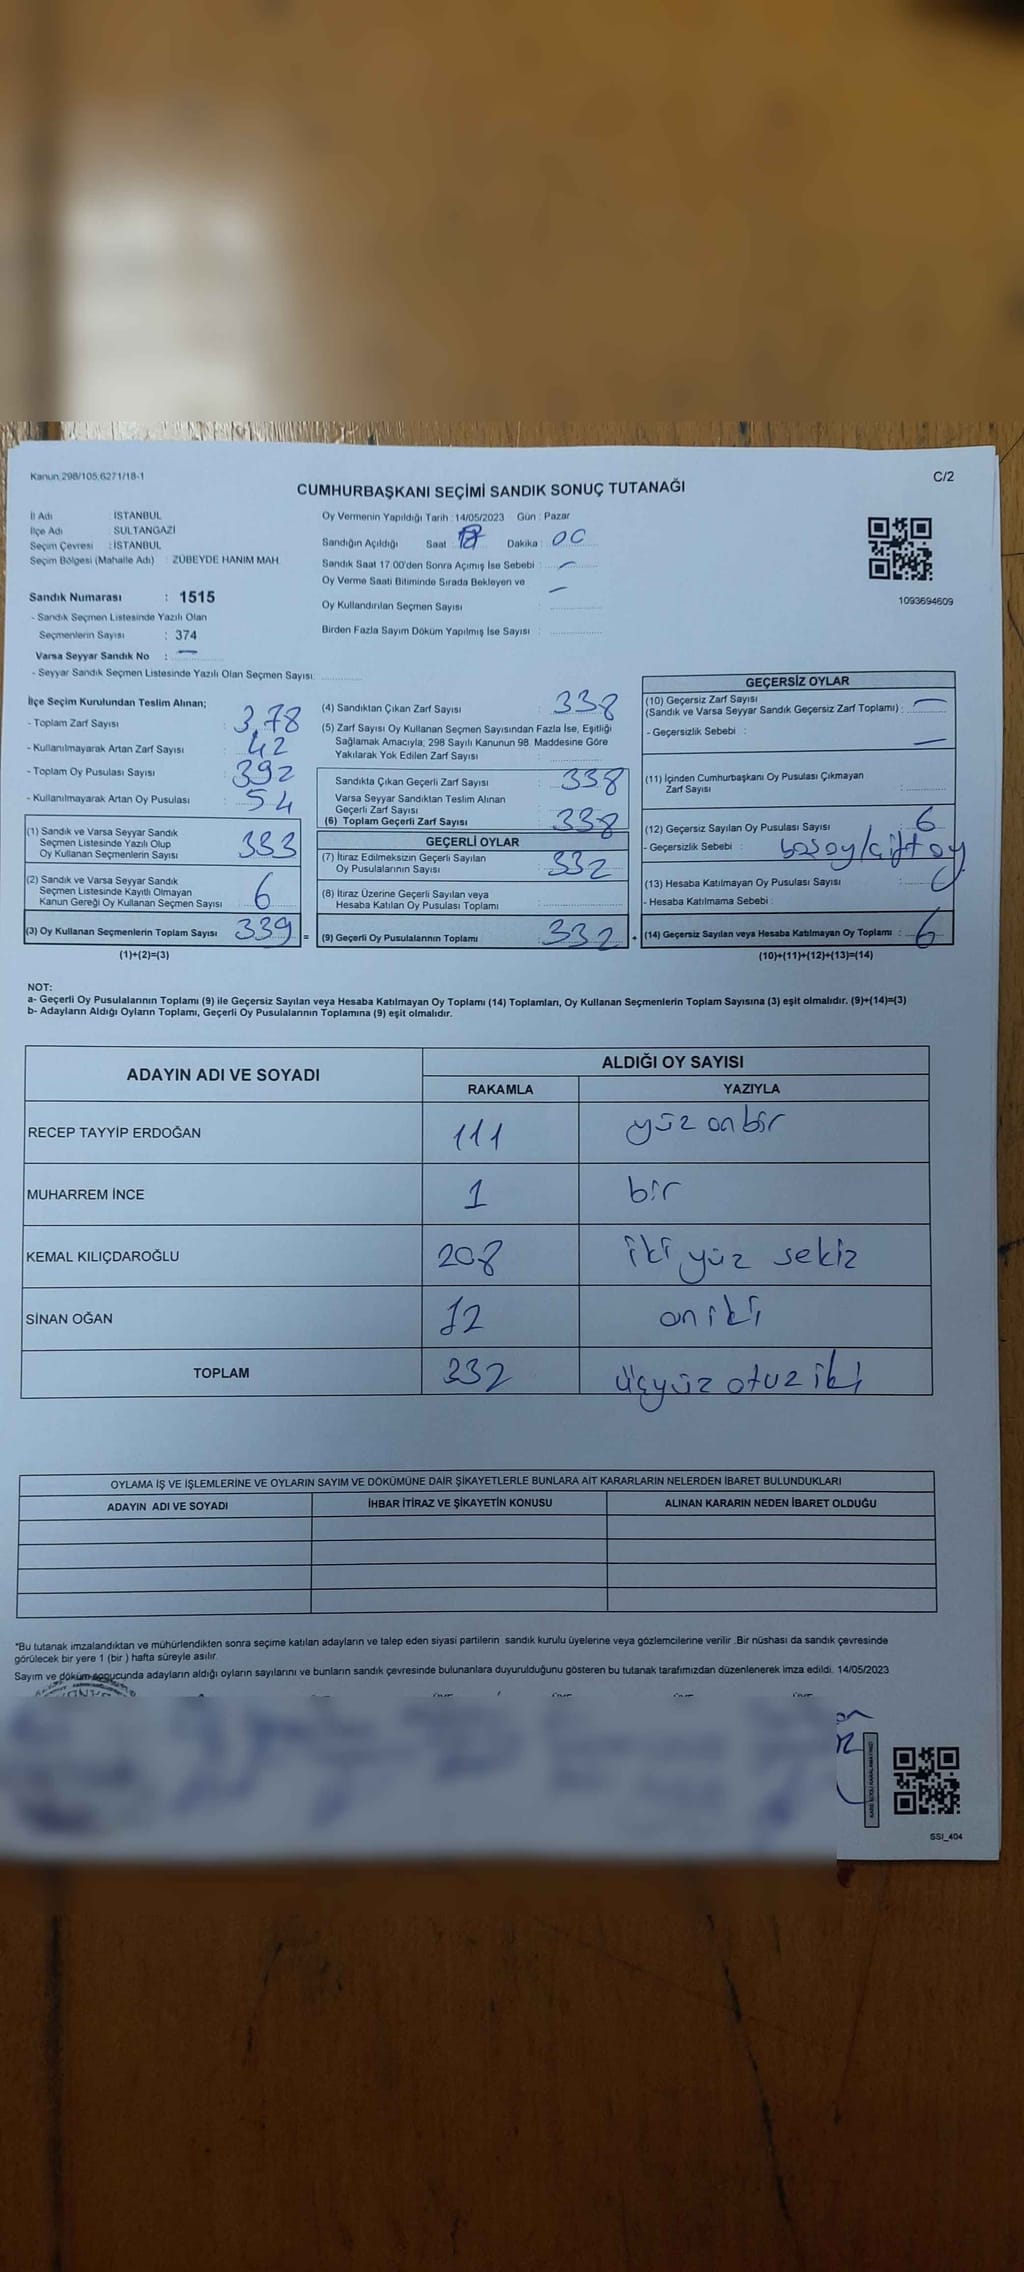 Kanun 298/105,6271/18-1
C/2
CUMHURBAŞKANI SEÇİMİ SANDIK SONUÇ TUTANAĞI
İl Adı : İSTANBUL
İlçe Adı : SULTANGAZİ
Seçim Çevresi : İSTANBUL
Seçim Bölgesi (Mahalle Adı) : ZÜBEYDE HANIM MAH.
Sandık Numarası : 1515
- Sandık Seçmen Listesinde Yazılı Olan
Seçmenlerin Sayısı : 374
Varsa Seyyar Sandık No : —
- Seyyar Sandık Seçmen Listesinde Yazılı Olan Seçmen Sayısı:
Oy Vermenin Yapıldığı Tarih : 14/05/2023 Gün : Pazar
Sandığın Açıldığı Saat : 17 Dakika : 00
Sandık Saat 17.00'den Sonra Açımış İse Sebebi : —
Oy Verme Saati Bitiminde Sırada Bekleyen ve —
Oy Kullandırılan Seçmen Sayısı :
Birden Fazla Sayım Döküm Yapılmış İse Sayısı :
1093694609
İlçe Seçim Kurulundan Teslim Alınan;
- Toplam Zarf Sayısı : 378
- Kullanılmayarak Artan Zarf Sayısı : 42
- Toplam Oy Pusulası Sayısı : 392
- Kullanılmayarak Artan Oy Pusulası : 54
(1) Sandık ve Varsa Seyyar Sandık
Seçmen Listesinde Yazılı Olup
Oy Kullanan Seçmenlerin Sayısı : 333
(2) Sandık ve Varsa Seyyar Sandık
Seçmen Listesinde Kayıtlı Olmayan
Kanun Gereği Oy Kullanan Seçmen Sayısı : 6
(3) Oy Kullanan Seçmenlerin Toplam Sayısı 339 =
(1)+(2)=(3)
(4) Sandıktan Çıkan Zarf Sayısı : 338
(5) Zarf Sayısı Oy Kullanan Seçmen Sayısından Fazla İse, Eşitliği
Sağlamak Amacıyla; 298 Sayılı Kanunun 98. Maddesine Göre
Yakılarak Yok Edilen Zarf Sayısı :
Sandıkta Çıkan Geçerli Zarf Sayısı : 338
Varsa Seyyar Sandıktan Teslim Alınan
Geçerli Zarf Sayısı :
(6) Toplam Geçerli Zarf Sayısı : 338
GEÇERLİ OYLAR
(7) İtiraz Edilmeksizin Geçerli Sayılan
Oy Pusulasının Sayısı : 332
(8) İtiraz Üzerine Geçerli Sayılan veya
Hesaba Katılan Oy Pusulası Toplamı :
(9) Geçerli Oy Pusulalarının Toplamı : 332 +
GEÇERSİZ OYLAR
(10) Geçersiz Zarf Sayısı
(Sandık ve Varsa Seyyar Sandık Geçersiz Zarf Toplamı) : —
- Geçersizlik Sebebi : —
(11) İçinden Cumhurbaşkanı Oy Pusulası Çıkmayan
Zarf Sayısı :
(12) Geçersiz Sayılan Oy Pusulası Sayısı : 6
- Geçersizlik Sebebi : boş oy/çift oy
(13) Hesaba Katılmayan Oy Pusulası Sayısı :
- Hesaba Katılmama Sebebi :
(14) Geçersiz Sayılan veya Hesaba Katılmayan Oy Toplamı : 6
(10)+(11)+(12)+(13)=(14)
NOT:
a- Geçerli Oy Pusulalarının Toplamı (9) ile Geçersiz Sayılan veya Hesaba Katılmayan Oy Toplamı (14) Toplamları, Oy Kullanan Seçmenlerin Toplam Sayısına (3) eşit olmalıdır. (9)+(14)=(3)
b- Adayların Aldığı Oyların Toplamı, Geçerli Oy Pusulalarının Toplamına (9) eşit olmalıdır.
ADAYIN ADI VE SOYADI ALDIĞI OY SAYISI
RAKAMLA YAZIYLA
RECEP TAYYİP ERDOĞAN 111 yüz onbir
MUHARREM İNCE 1 bir
KEMAL KILIÇDAROĞLU 208 iki yüz sekiz
SİNAN OĞAN 12 oniki
TOPLAM 332 üçyüz otuz iki
OYLAMA İŞ VE İŞLEMLERİNE VE OYLARIN SAYIM VE DÖKÜMÜNE DAİR ŞİKAYETLERLE BUNLARA AİT KARARLARIN NELERDEN İBARET BULUNDUKLARI
ADAYIN ADI VE SOYADI İHBAR İTİRAZ VE ŞİKAYETİN KONUSU ALINAN KARARIN NEDEN İBARET OLDUĞU
*Bu tutanak imzalandıktan ve mühürlendikten sonra seçime katılan adayların ve talep eden siyasi partilerin sandık kurulu üyelerine veya gözlemcilerine verilir .Bir nüshası da sandık çevresinde
görülecek bir yere 1 (bir ) hafta süreyle asılır.
Sayım ve döküm sonucunda adayların aldığı oyların sayılarını ve bunların sandık çevresinde bulunanlara duyurulduğunu gösteren bu tutanak tarafımızdan düzenlenerek imza edildi. 14/05/2023
SSI_404